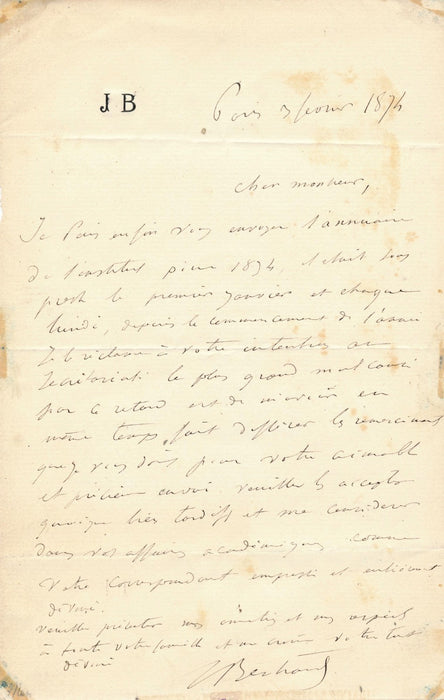 JB
Paris 3 fevrier 1874
cher monsieur,
Je puis enfin vous envoyer l'annuaire
de l'institut pour 1874, il était
le premier janvier et chaque
lundi, depuis le commencement de l'année
Je le réclame à votre intention au
Secrétariat le plus grand mal causé
par ce retard est de m'avoir en
même temps fait différer les remerciments
que je vous dois pour votre aimable
et précieux envoi veuillez les accepter
quoique bien tardifs et me considérer
dans vos affaires académiques comme
votre correspondant empressé et entièrement
dévoué.
veuillez présenter mes amitiés et mes respects
à toute votre famille et me croire votre tout
dévoué
J Bertrand